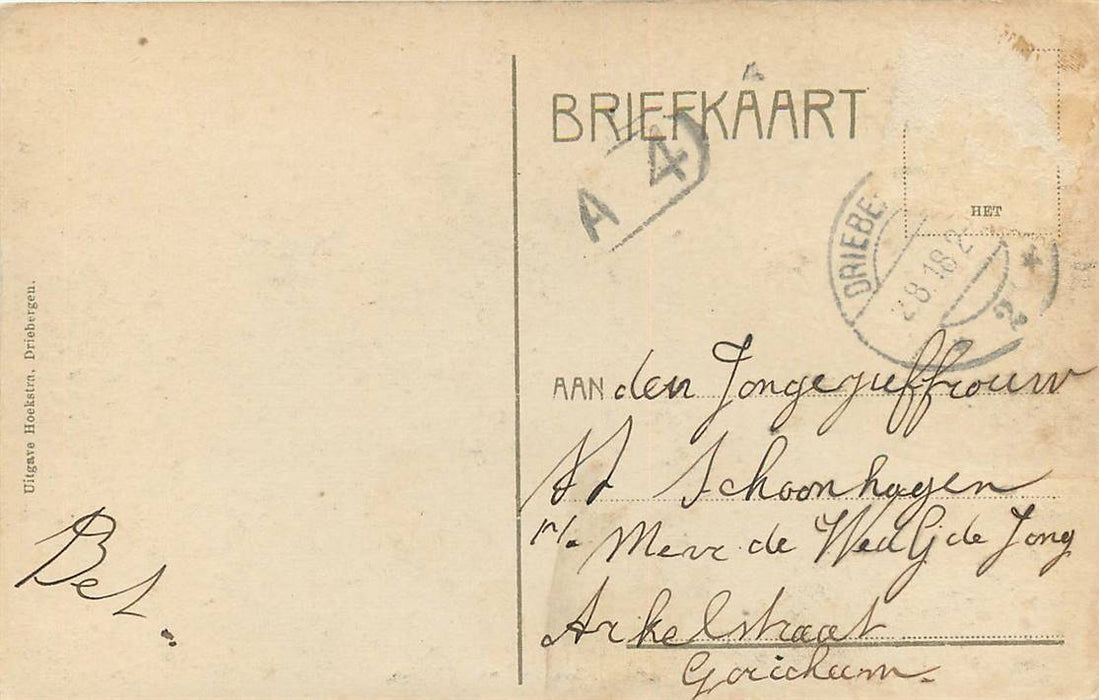 Uitgave Hoekstra, Driebergen.
Bet.
BRIEFKAART
A
A 4
HET
DRIEBE
8.18.2
2
AAN den Jongejuffrouw
Schoonhagen
p/a Mevr de Wed G de Jong
Arkelstraat
Gorichum.